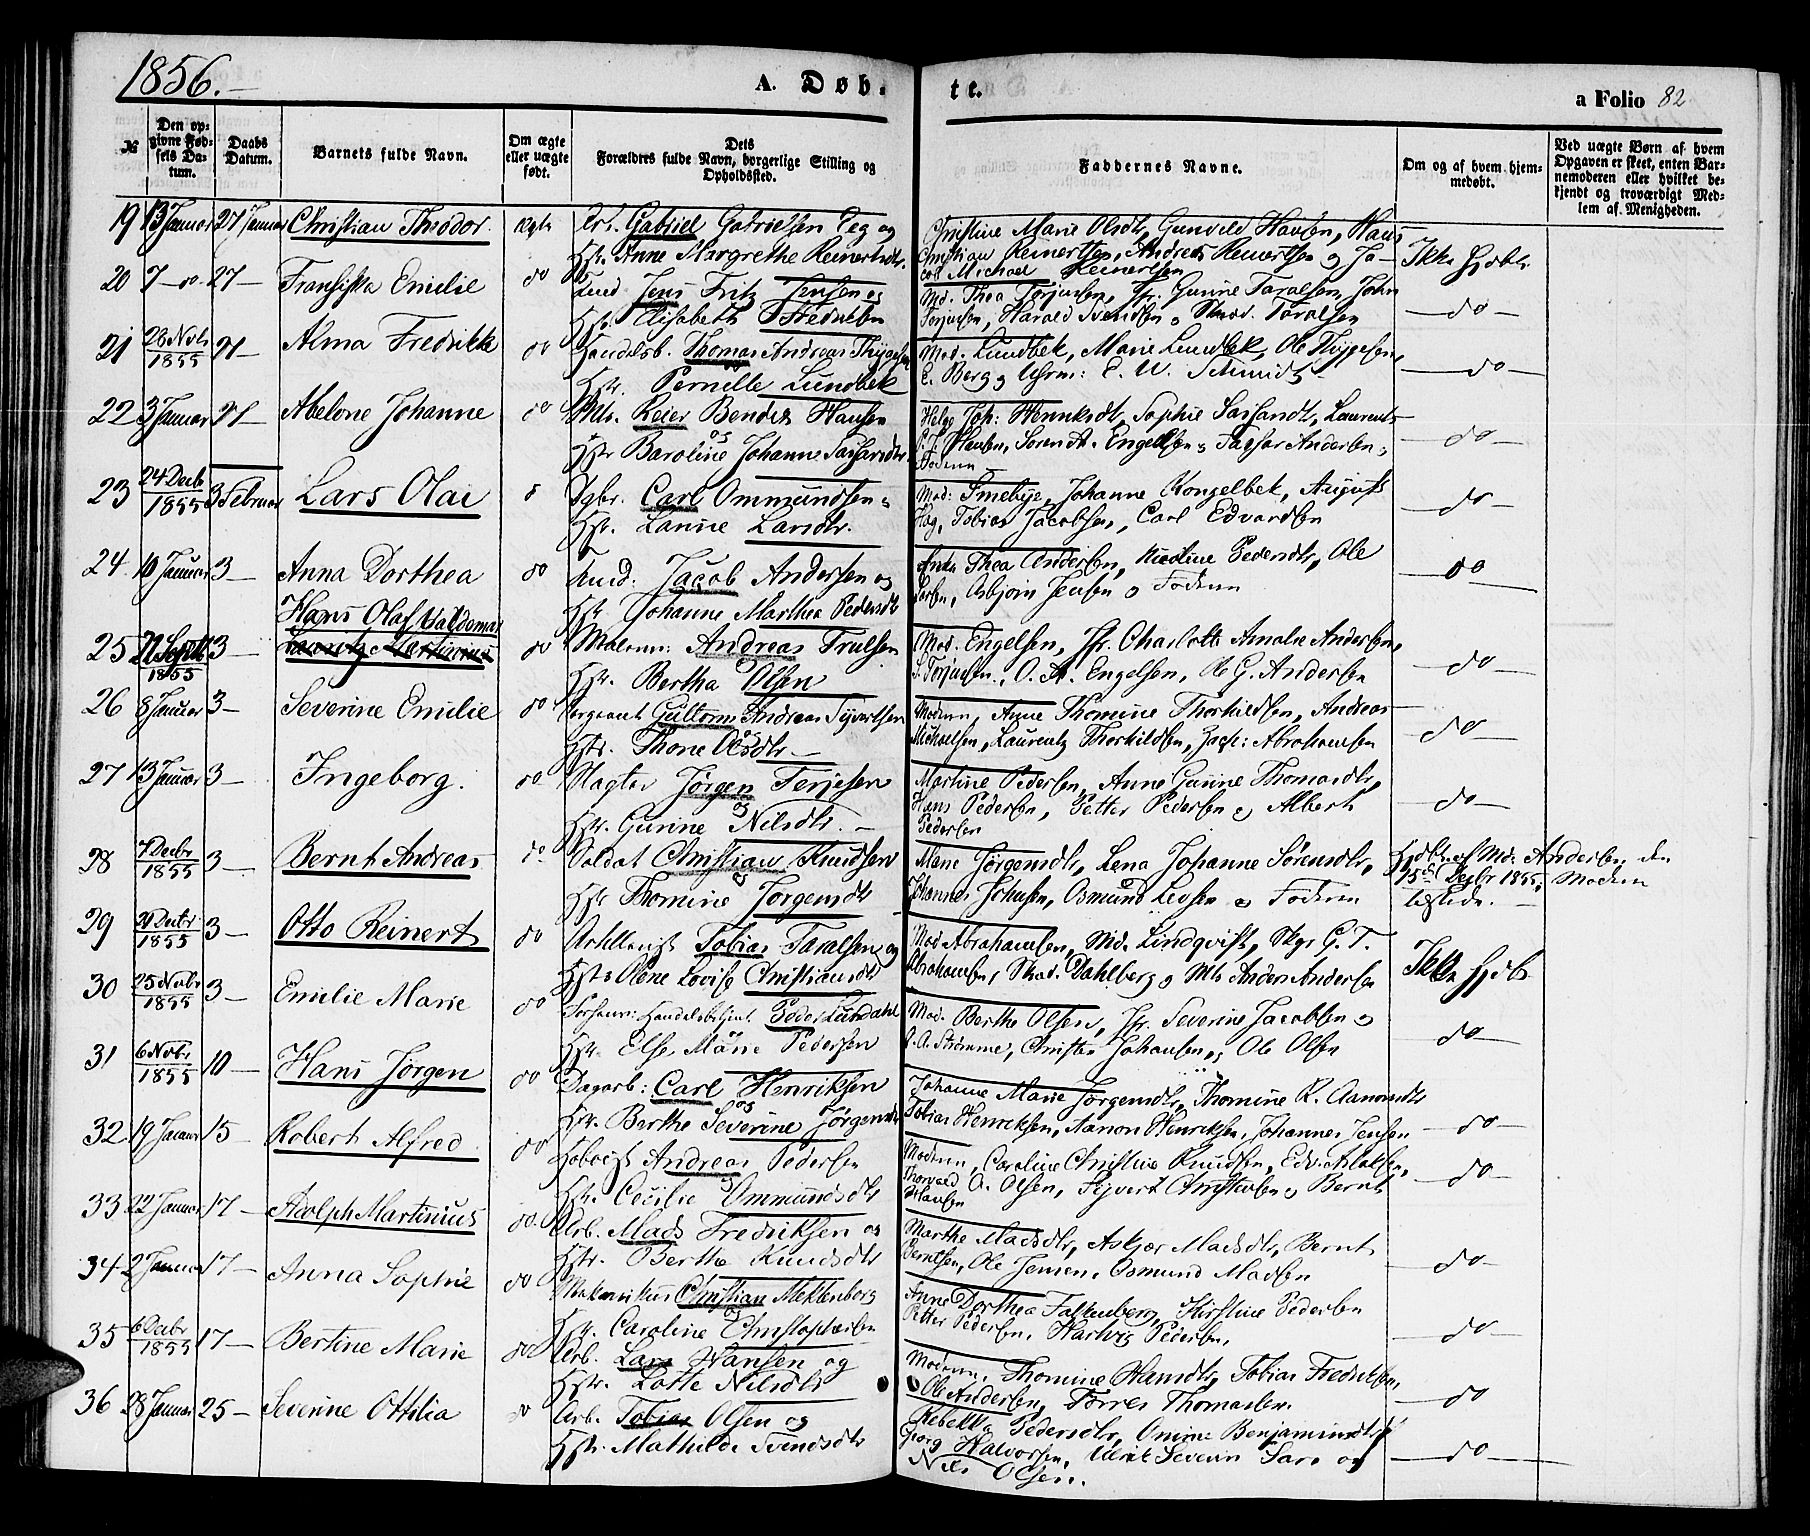 1856.—
A. Døb-
te.
a Folio 82
№
Den op-
givne Fød-
sels Da-
tum.
Daabs
Datum.
Barnets fulde Navn.
Om ægte
eller uægte
født.
Dets
Forældres fulde Navn, borgerlige Stilling og
Opholdssted.
Faddernes Navne.
Om og af hvem hjem-
medøbt.
Ved uægte Børn af hvem
Opgaven er skeet, enten Bar-
nemoderen eller hvilket be-
kjendt og troværdigt Med-
lem af Menigheden.
19 13 Januar 27 Januar Christian Theodor. Ægte Arb. Gabriel Gabrielsen Teg og
Hstr. Anne Margrethe Reinertsdtr.
Christine Marie Olsdtr, Gunvald Hansen, Hans
Christian Reinertsen, Andreas Reinertsen og Ja-
cob Michael Reinertsen
Ikke Hjdbt.
20 7 – do. 27 — Fransiska Emilie do Jens Fritz Jensen og
Hstr. Elisabeth Fredriksen
Mad. Thea Terjusen, Jfr. Gunine Taralsen, John
Terjusen, Harald Svendsen, Taralsen
— do —
21 28 Novb 1855 27 — Alma Fredrikke do Handelsb. Thomas Andreas Thygesen
og
Hstr. Pernelle Lundbek
Mad. Lundbek, Marie Lundbek, Ole Thygesen,
E. Berg og Uhrm: E. W. Schmidt
— do —
22 3 Januar 27 — Abelone Johanne do Reier Bendix Hansen
og
Hstr Baroline Johanne
Helge Henriksdtr, Sophie Laurents
Hansen, Søren A. Engelsen Andersen
Fadrene
— do —
23 24 Decbr 1855 3 Februar Lars Olai d Dgbr. Carl Ommundsen
Hstr. Lanne Larsdtr.
Mad: Smebye, Johanne Kongelbek, August
Hag, Tobias Jacobsen, Carl Edvardsen
do —
24 10 Januar 3 — Anna Dorthea do Jacob Andersen og
Hstr. Johanne Marthea Pedersdtr
Thea Andersen, Nicoline Pedersdtr, Ole
Larsen, Asbjørn Jensen og Faderen
— do
25 21 Septb 1855 3 — Hans Olaf Valdemar
Lauritz Martinius
do Malerm: Andreas Trulsen
Hstr. Bertha Olsen
Mad. Engelsen, Jfr. Charlotte Amalie Andersen,
S. Terjusen, O. A. Engelsen, Ole G. Andersen
do —
26 8 Januar 3 — Severine Emilie do Sergeant Guttorm Andreas Syvertsen
og
Hstr. Thone Olsdtr —
Moderen, Anne Thomine Thorkildsen, Andreas
Michaelsen, Laurentz Thorkildsen, Jac: Abrahamsen
do —
27 13 Januar 3 — Ingeborg. do Slagter Jørgen Terjesen
og
Hstr. Gurine Nilsdtr. —
Martine Pedersen, Anne Gurine Thomasdtr,
Hans Pedersen, Petter Pedersen og Albert
Pedersen
— do —
28 7 Decbr 1855 3 — Bernt Andreas do Soldat Christian Knudsen
og
Hstr Thomine Jørgensdtr
Marie Jørgensdtr, Lena Johanne Sørensdtr,
Johannes Johnsen, Osmund Ledsen og Faderen
Hjdbt af Md. Andersen den
15de Decbr 1855, Moderen
tilstede. —
29 20 Decbr 1855 3 — Otto Reinert do Tobias Taralsen og
Hstr Olene Lovise Christiansdtr
Mad Abrahamsen, Md. Lindqvist, Skpr G. T.
Abrahamsen, Dahlberg og Anders Andersen
Ikke Hjdbt
30 25 Novbr 1855 3 — Emilie Marie do Forhenv: Handelsbetjent Peder Lundahl
og
Hstr. Else Marie Pedersen
Mad. Berthe Olsen, Jfr. Severine Jacobsen og
O. A. Strømme, Christen Johansen og Ole Olsen
— do —
31 6 Novbr 1855 10 — Hans Jørgen do Dagarb: Carl Henriksen
og
Hstr. Berthe Severine Jørgensdtr
Johanne Marie Jørgensdtr, Thomine K. Aanonsdtr
Tobias Henriksen, Aanon Henriksen, Johannes Jensen
— do —
32 19 Januar 15 — Robert Alfred do Andreas Pedersen
og
Hstr. Cecilie Ommundsdtr
Moderen, Caroline Christine Knudsen, Edv. Aslaksen,
Thorvald A. Olsen, Syvert Christensen og Bernt
Hansen
— do —
33 22 Januar 17 — Adolph Martinius do. Arb. Mads Fredriksen og
Hstr. Berthe Knudsdtr
Marthe Madsdtr, Askjær Madsdtr, Bernt
Berntsen, Ole Jensen, Osmund Madsen
— do —
34 2 Januar 17 — Anna Sophie do Mekanikus Christian Meklenborg
og
Hstr. Caroline Christophersen
Anne Dorthea Falkenberg, Kirstine Pedersen
Petter Pedersen, Hartvig Pedersen,
— do —
35 6 Decbr 1855 17 — Bertine Marie do Arb. Lars Hansen og
Hstr. Lotte Nilsdtr
Moderen, Thomine Hansdtr, Tobias Fredriksen,
Ole Andersen, Torres Thomasen.
— do
36 28 Januar 25 — Severine Ottilia do Arb. Tobias Olsen og
Hstr. Mathilde Svendsdtr
Rebekka Pedersdtr, Benjaminsdtr
Georg Halvorsen, Ulrik Severin Lars og
Nils Olsen.
— do —